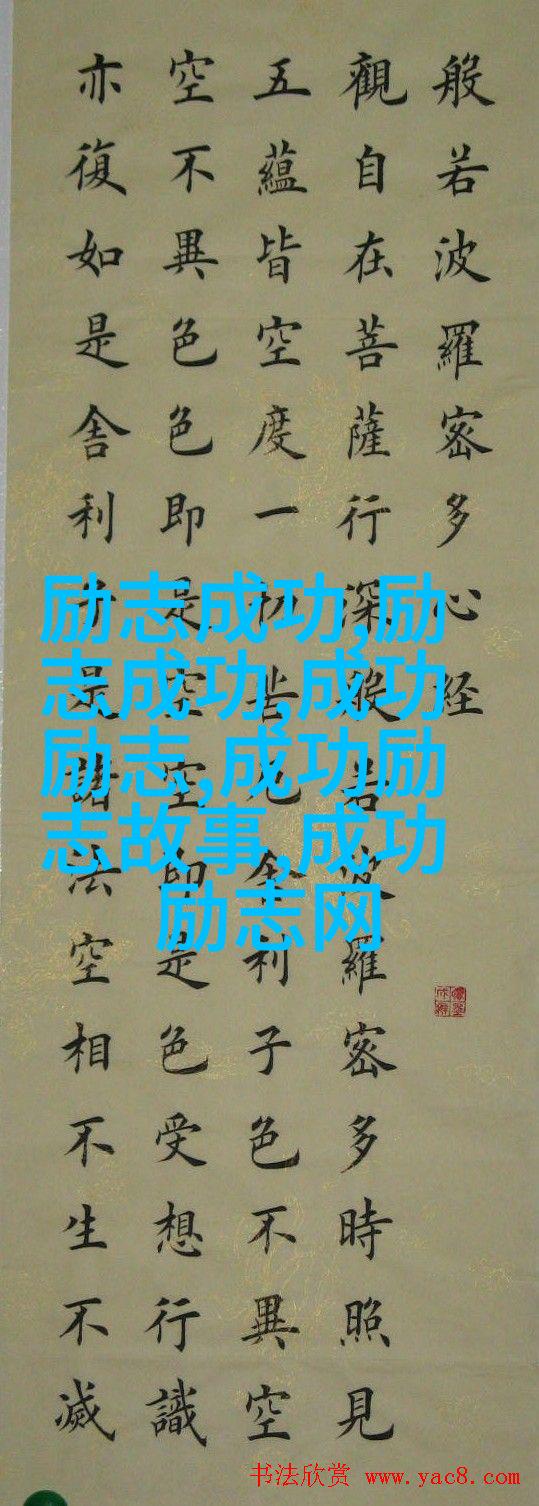 般若波羅密多心经
觀自在菩薩行深般若波羅密多時照見
五蘊皆空度一切苦厄舍利子色不異空
空不異色色即是空空即是色受想行識
亦復如是舍利子是諸法空相不生不滅
励志成功,励
志成功,成功
励志,成功励
志故事,成功
励志网
书法欣赏 www.yac8.com